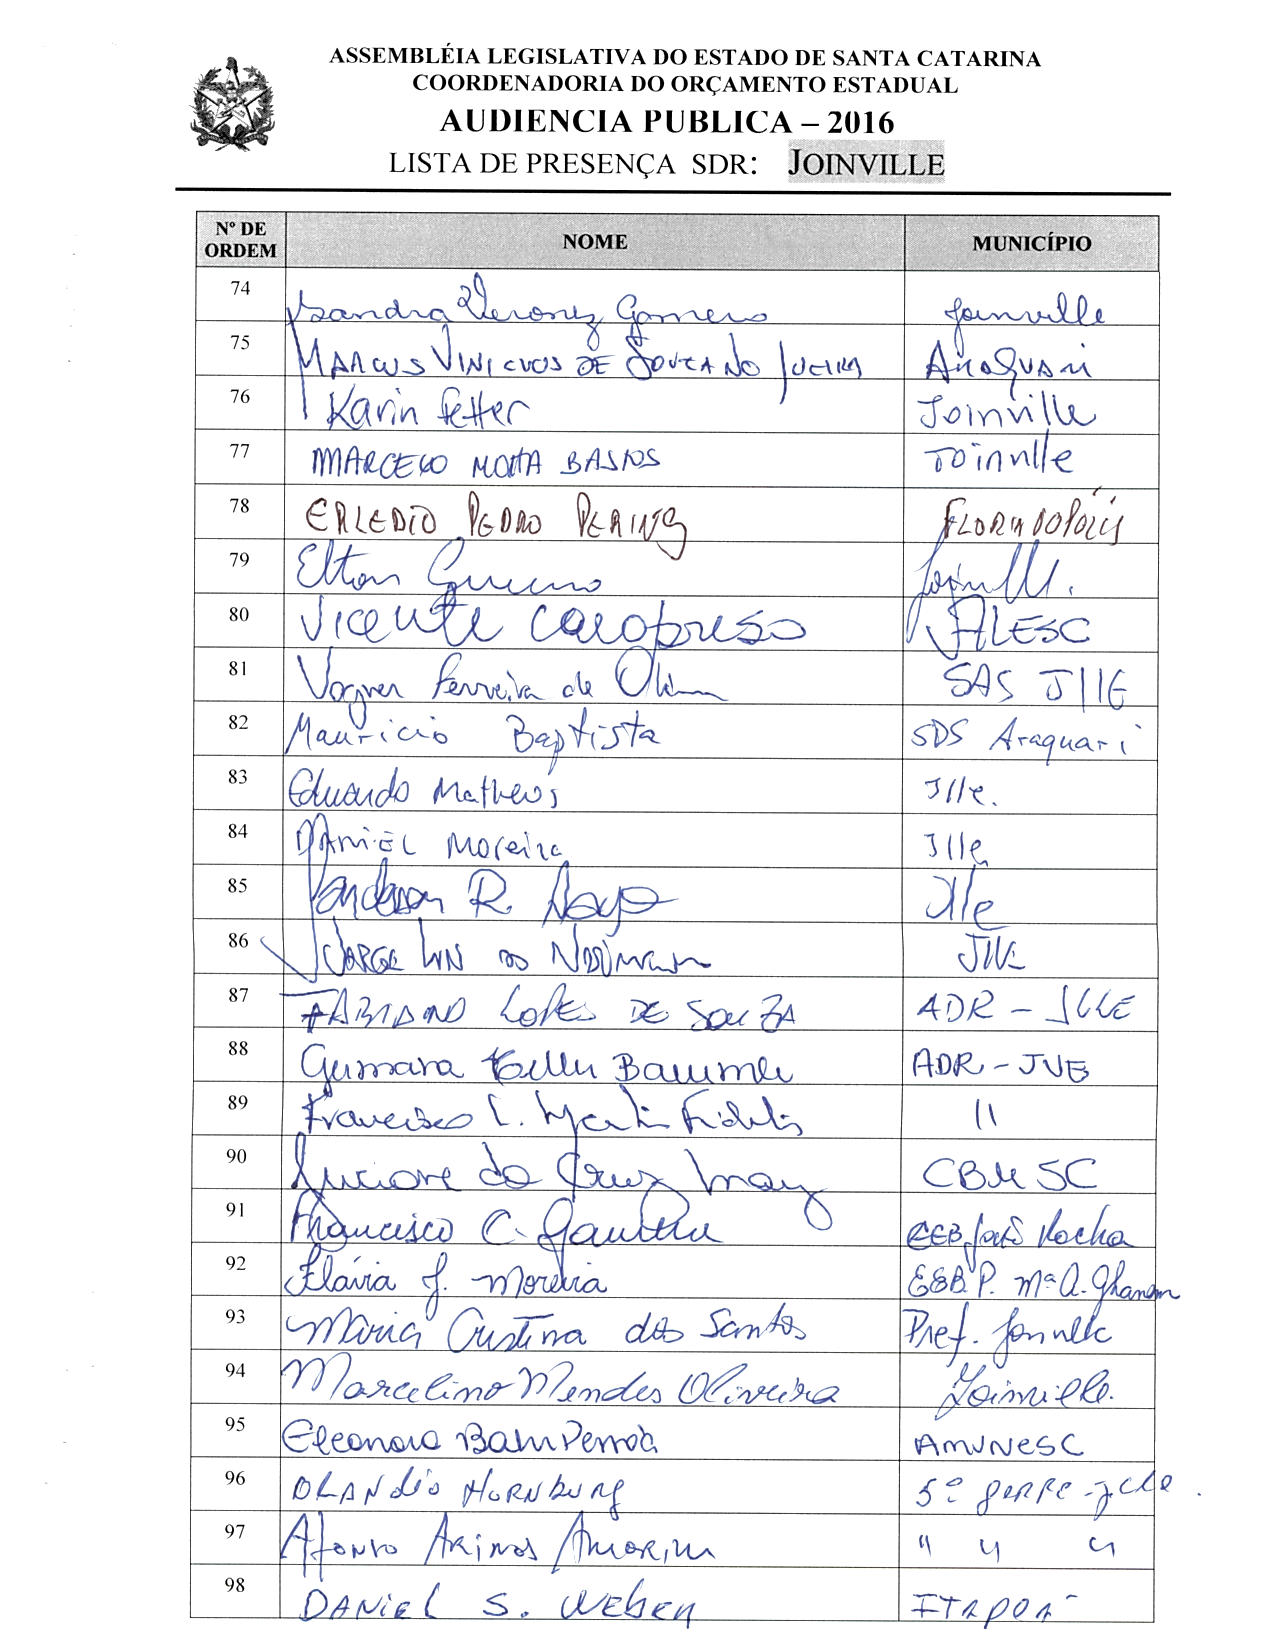 ASSEMBLÉIA LEGISLATIVA DO ESTADO DE SANTA CATARINA
COORDENADORIA DO ORÇAMENTO ESTADUAL
AUDIENCIA PUBLICA – 2016
LISTA DE PRESENÇA SDR: JOINVILLE
Nº DE ORDEM NOME MUNICÍPIO
74 Sandra Veronez Gomero Joinville
75 MARCUS VINICIUS DE SOUZA NOGUEIRA ARAQUARI
76 Karin Fetter Joinville
77 MARCELO MOTA BASTOS Joinville
78 PEDRO FLORIANOPOLIS
79 Elton Joinville.
80 Vicente Caropreso ALESC
81 Vagner Ferreira de SAS Jlle
82 Mauricio Baptista SDS Araquari
83 Eduardo Matheus Jlle.
84 DANIEL Moreira Jlle
85 R. Jlle
86 JVE
87 FABIANO LOPES DE SOUZA ADR - JLLE
88 Baumer ADR - JVE
89 Francisco "
90 Luciane da Cruz CBMSC
91 Francisco C. EEB João Rocha
92 Flávia J. Moreira EEB. P. Mª A. Ghanem
93 Maria Cristina dos Santos Pref. Joinville
94 Marcelino Mendes Oliveira Joinville.
95 Eleonora AMUNESC
96 HORNBURG 5ª
97 Afonso Arinos Amorim " " "
98 DANIEL S. WEBER ITAPOÁ